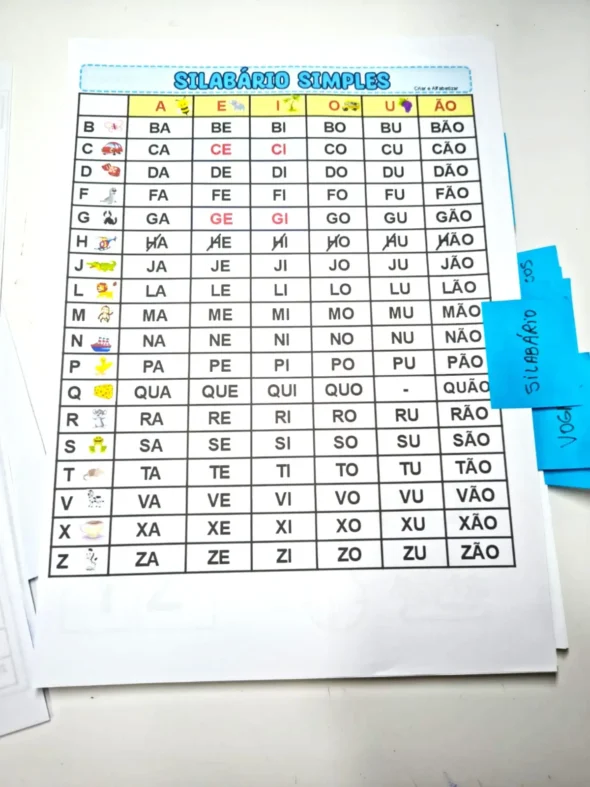 SILABÁRIO SIMPLES
Criar e Alfabetizar
A E I O U ÃO
B BA BE BI BO BU BÃO
C CA CE CI CO CU CÃO
D DA DE DI DO DU DÃO
F FA FE FI FO FU FÃO
G GA GE GI GO GU GÃO
H HA HE HI HO HU HÃO
J JA JE JI JO JU JÃO
L LA LE LI LO LU LÃO
M MA ME MI MO MU MÃO
N NA NE NI NO NU NÃO
P PA PE PI PO PU PÃO
Q QUA QUE QUI QUO - QUÃO
R RA RE RI RO RU RÃO
S SA SE SI SO SU SÃO
T TA TE TI TO TU TÃO
V VA VE VI VO VU VÃO
X XA XE XI XO XU XÃO
Z ZA ZE ZI ZO ZU ZÃO
SILABÁRIO